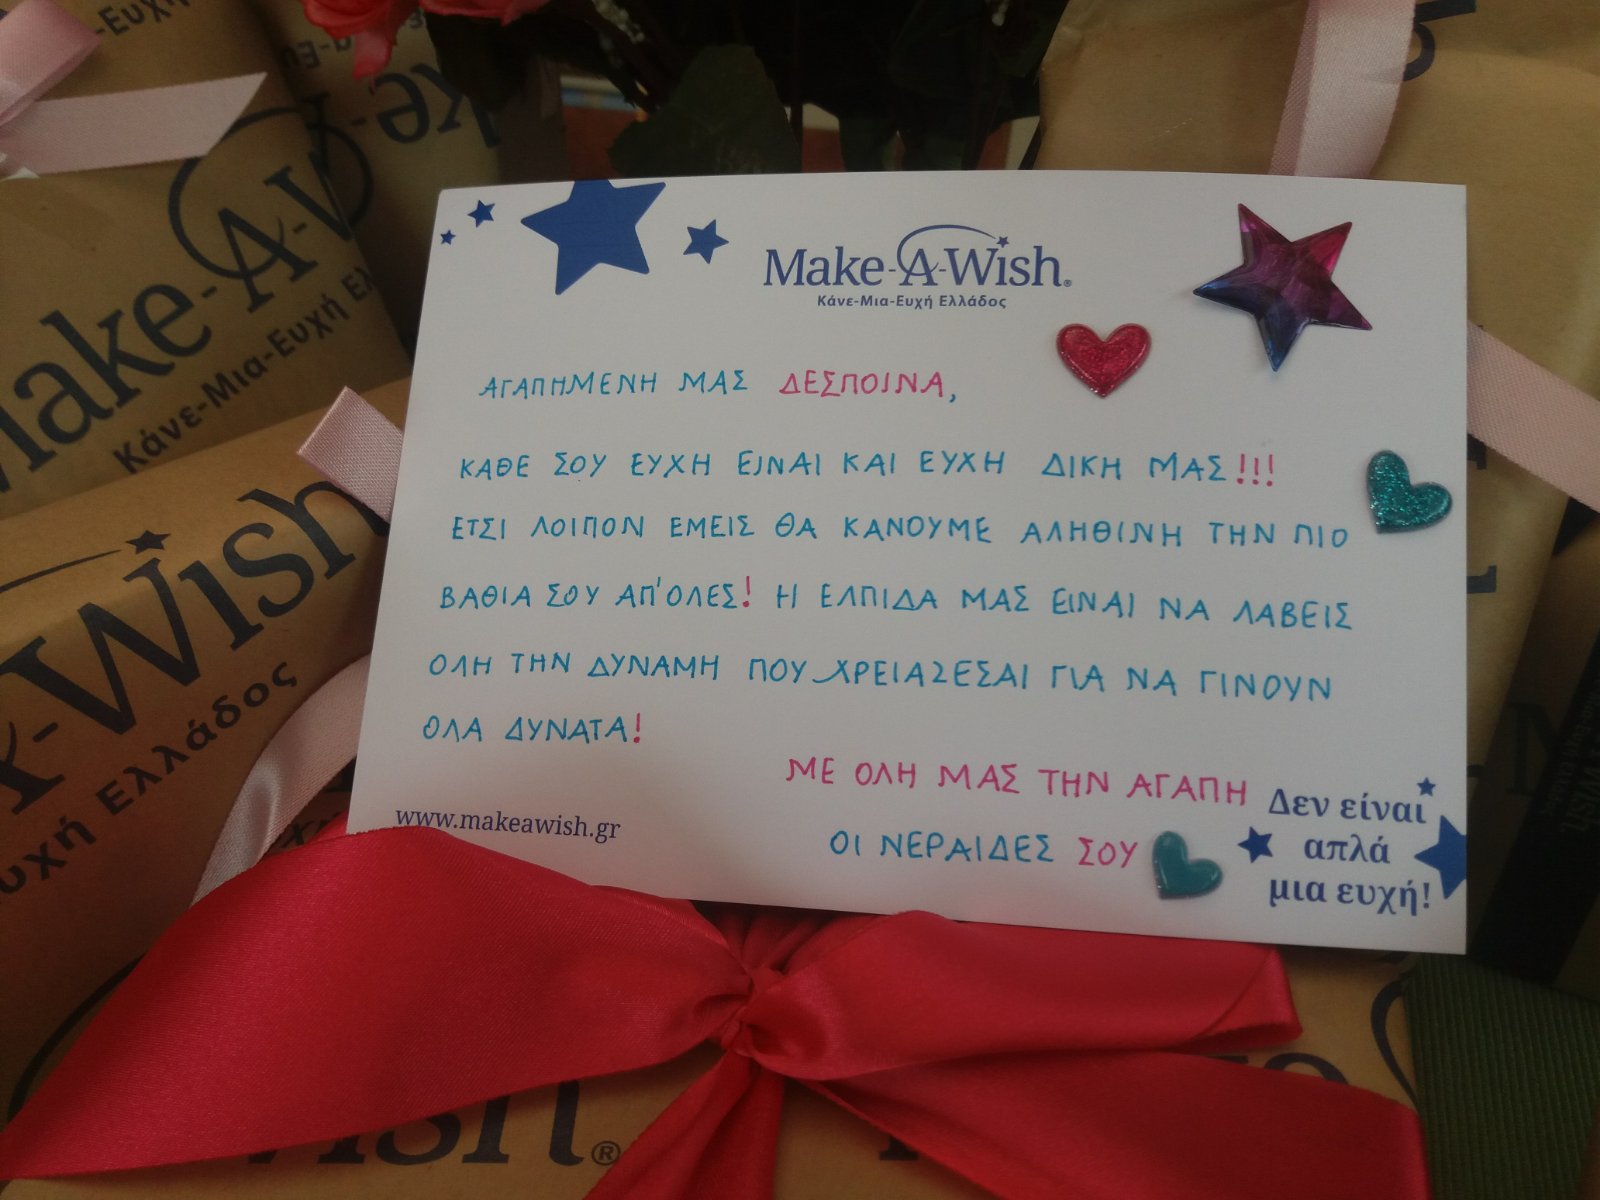 Make-A-Wish®
Κάνε-Μια-Ευχή Ελλάδος
ΑΓΑΠΗΜΕΝΗ ΜΑΣ ΔΕΣΠΟΙΝΑ,
ΚΑΘΕ ΣΟΥ ΕΥΧΗ ΕΙΝΑΙ ΚΑΙ ΕΥΧΗ ΔΙΚΗ ΜΑΣ!!!
ΕΤΣΙ ΛΟΙΠΟΝ ΕΜΕΙΣ ΘΑ ΚΑΝΟΥΜΕ ΑΛΗΘΙΝΗ ΤΗΝ ΠΙΟ
ΒΑΘΙΑ ΣΟΥ ΑΠ'ΟΛΕΣ! Η ΕΛΠΙΔΑ ΜΑΣ ΕΙΝΑΙ ΝΑ ΛΑΒΕΙΣ
ΟΛΗ ΤΗΝ ΔΥΝΑΜΗ ΠΟΥ ΧΡΕΙΑΖΕΣΑΙ ΓΙΑ ΝΑ ΓΙΝΟΥΝ
ΟΛΑ ΔΥΝΑΤΑ!
ΜΕ ΟΛΗ ΜΑΣ ΤΗΝ ΑΓΑΠΗ
ΟΙ ΝΕΡΑΙΔΕΣ ΣΟΥ
www.makeawish.gr
Δεν είναι
απλά
μια ευχή!
Make-A-W
Κάνε-Μια-Ευχή Ελ
-Wish
υχή Ελλάδος
wish®